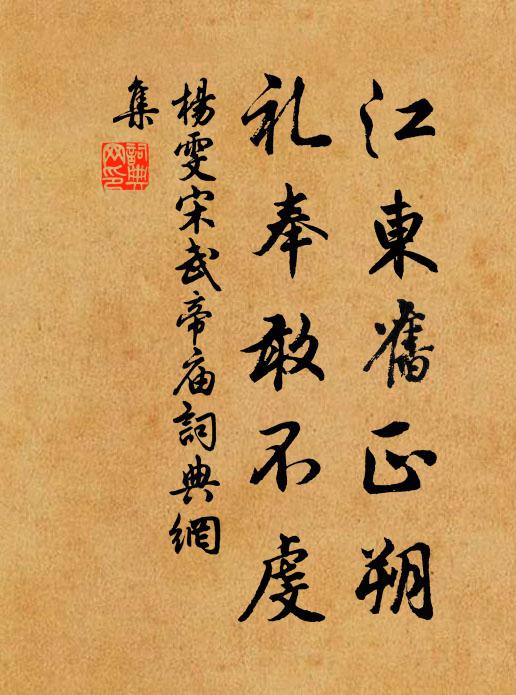 江東舊正朔
礼奉敢不虔
楊雯宋武帝庙詞典網
集
詞典网印